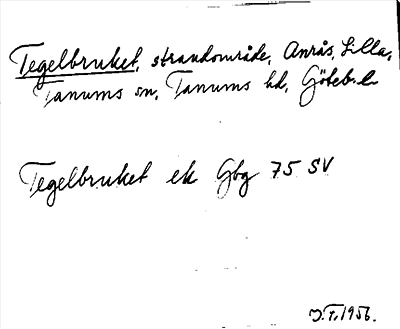 Tegelbruket, strandområde, Anrås, Lilla,
Tanums sn, Tanums hd, Göteb. l
Tegelbruket ek Gbg 75 SV
J.T. 1956.